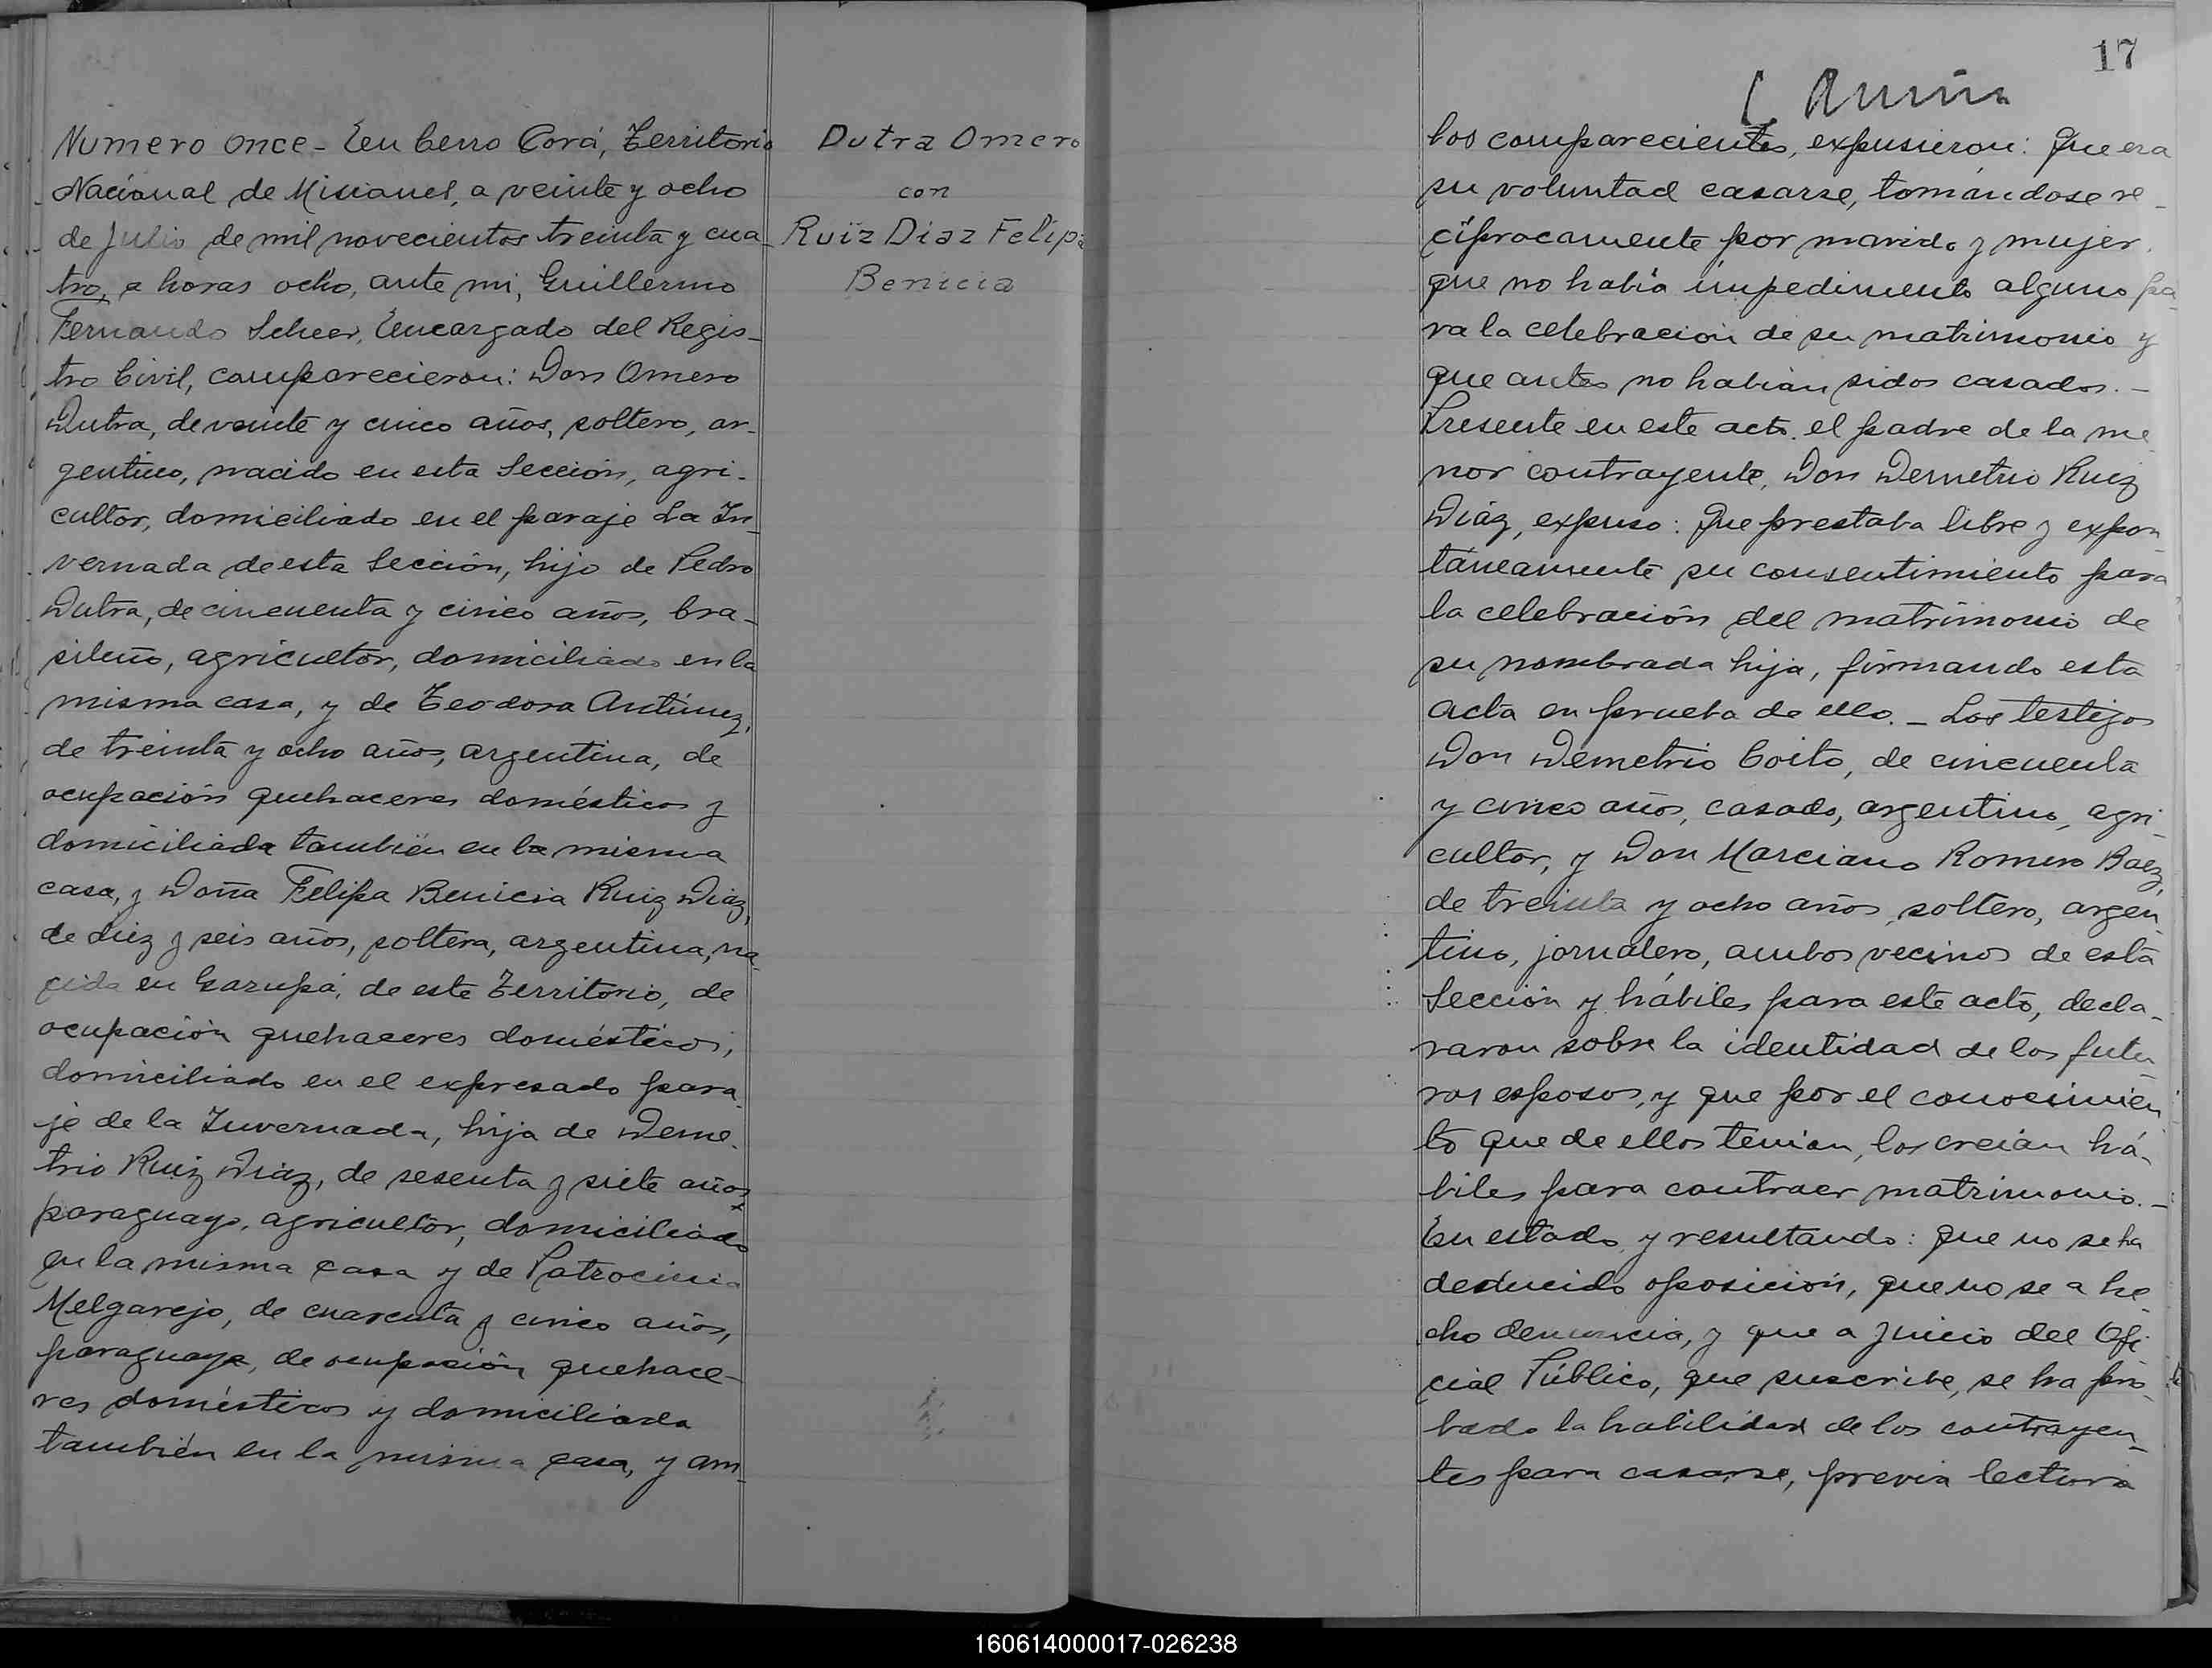 Numero once - En Cerro Corá, Territorio
Nacional de Misiones, a veinte y ocho
de Julio de mil novecientos treinta y cua-
tro, a horas ocho, ante mi, Guillermo
Fernando Scheer, Encargado del Regis-
tro Civil, comparecieron: Don Omero
Dutra, de veinte y cinco años, soltero, ar-
gentino, nacido en esta Sección, agri-
cultor, domiciliado en el paraje La In-
vernada de esta Sección, hijo de Pedro
Dutra, de cincuenta y cinco años, bra-
sileño, agricultor, domiciliado en la
misma casa, y de Teodora Antúnez,
de treinta y ocho años, argentina, de
ocupación quehaceres domésticos y
domiciliada también en la misma
casa, y Doña Felipa Benicia Ruiz Diaz,
de diez y seis años, soltera, argentina, na-
cida en Garupá, de este Territorio, de
ocupación quehaceres domésticos,
domiciliado en el expresado para-
je de la Invernada, hija de Deme-
trio Ruiz Diaz, de sesenta y siete años,
paraguayo, agricultor, domiciliado
en la misma casa y de Patrocinia
Melgarejo, de cuarenta y cinco años,
paraguaya, de ocupación quehace-
res domésticos y domiciliada
también en la misma casa, y am-
Dutra Omero
con
Ruiz Diaz Felipa
Benicia
17
bos comparecientes, expusieron: Que era
su voluntad casarse, tomándose re-
ciprocamente por marido y mujer,
que no había impedimento alguno pa-
ra la celebración de su matrimonio y
que antes no habían sidos casados. -
Presente en este acto el padre de la me-
nor contrayente, Don Demetrio Ruiz
Diáz, expuso: Que prestaba libre y expon-
táneamente su consentimiento para
la celebración del matrimonio de
su nombrada hija, firmando esta
acta en prueba de ello. - Los testigos
Don Demetrio Coito, de cincuenta
y cinco años, casado, argentino, agri-
cultor, y Don Marciano Romero Baez,
de treinta y ocho años, soltero, argen-
tino, jornalero, ambos vecinos de esta
Sección y hábiles para este acto, decla-
raron sobre la identidad de los futu-
ros esposos, y que por el conocimien-
to que de ellos tenian, los creian há-
biles para contraer matrimonio. -
En estado y resultando: que no se ha
deducido oposición, que no se a he-
cho denuncia, y que a juicio del Ofi-
cial Público, que suscribe, se ha pro-
bado la habilidad de los contrayen-
tes para casarse, previa lectura
160614000017-026238